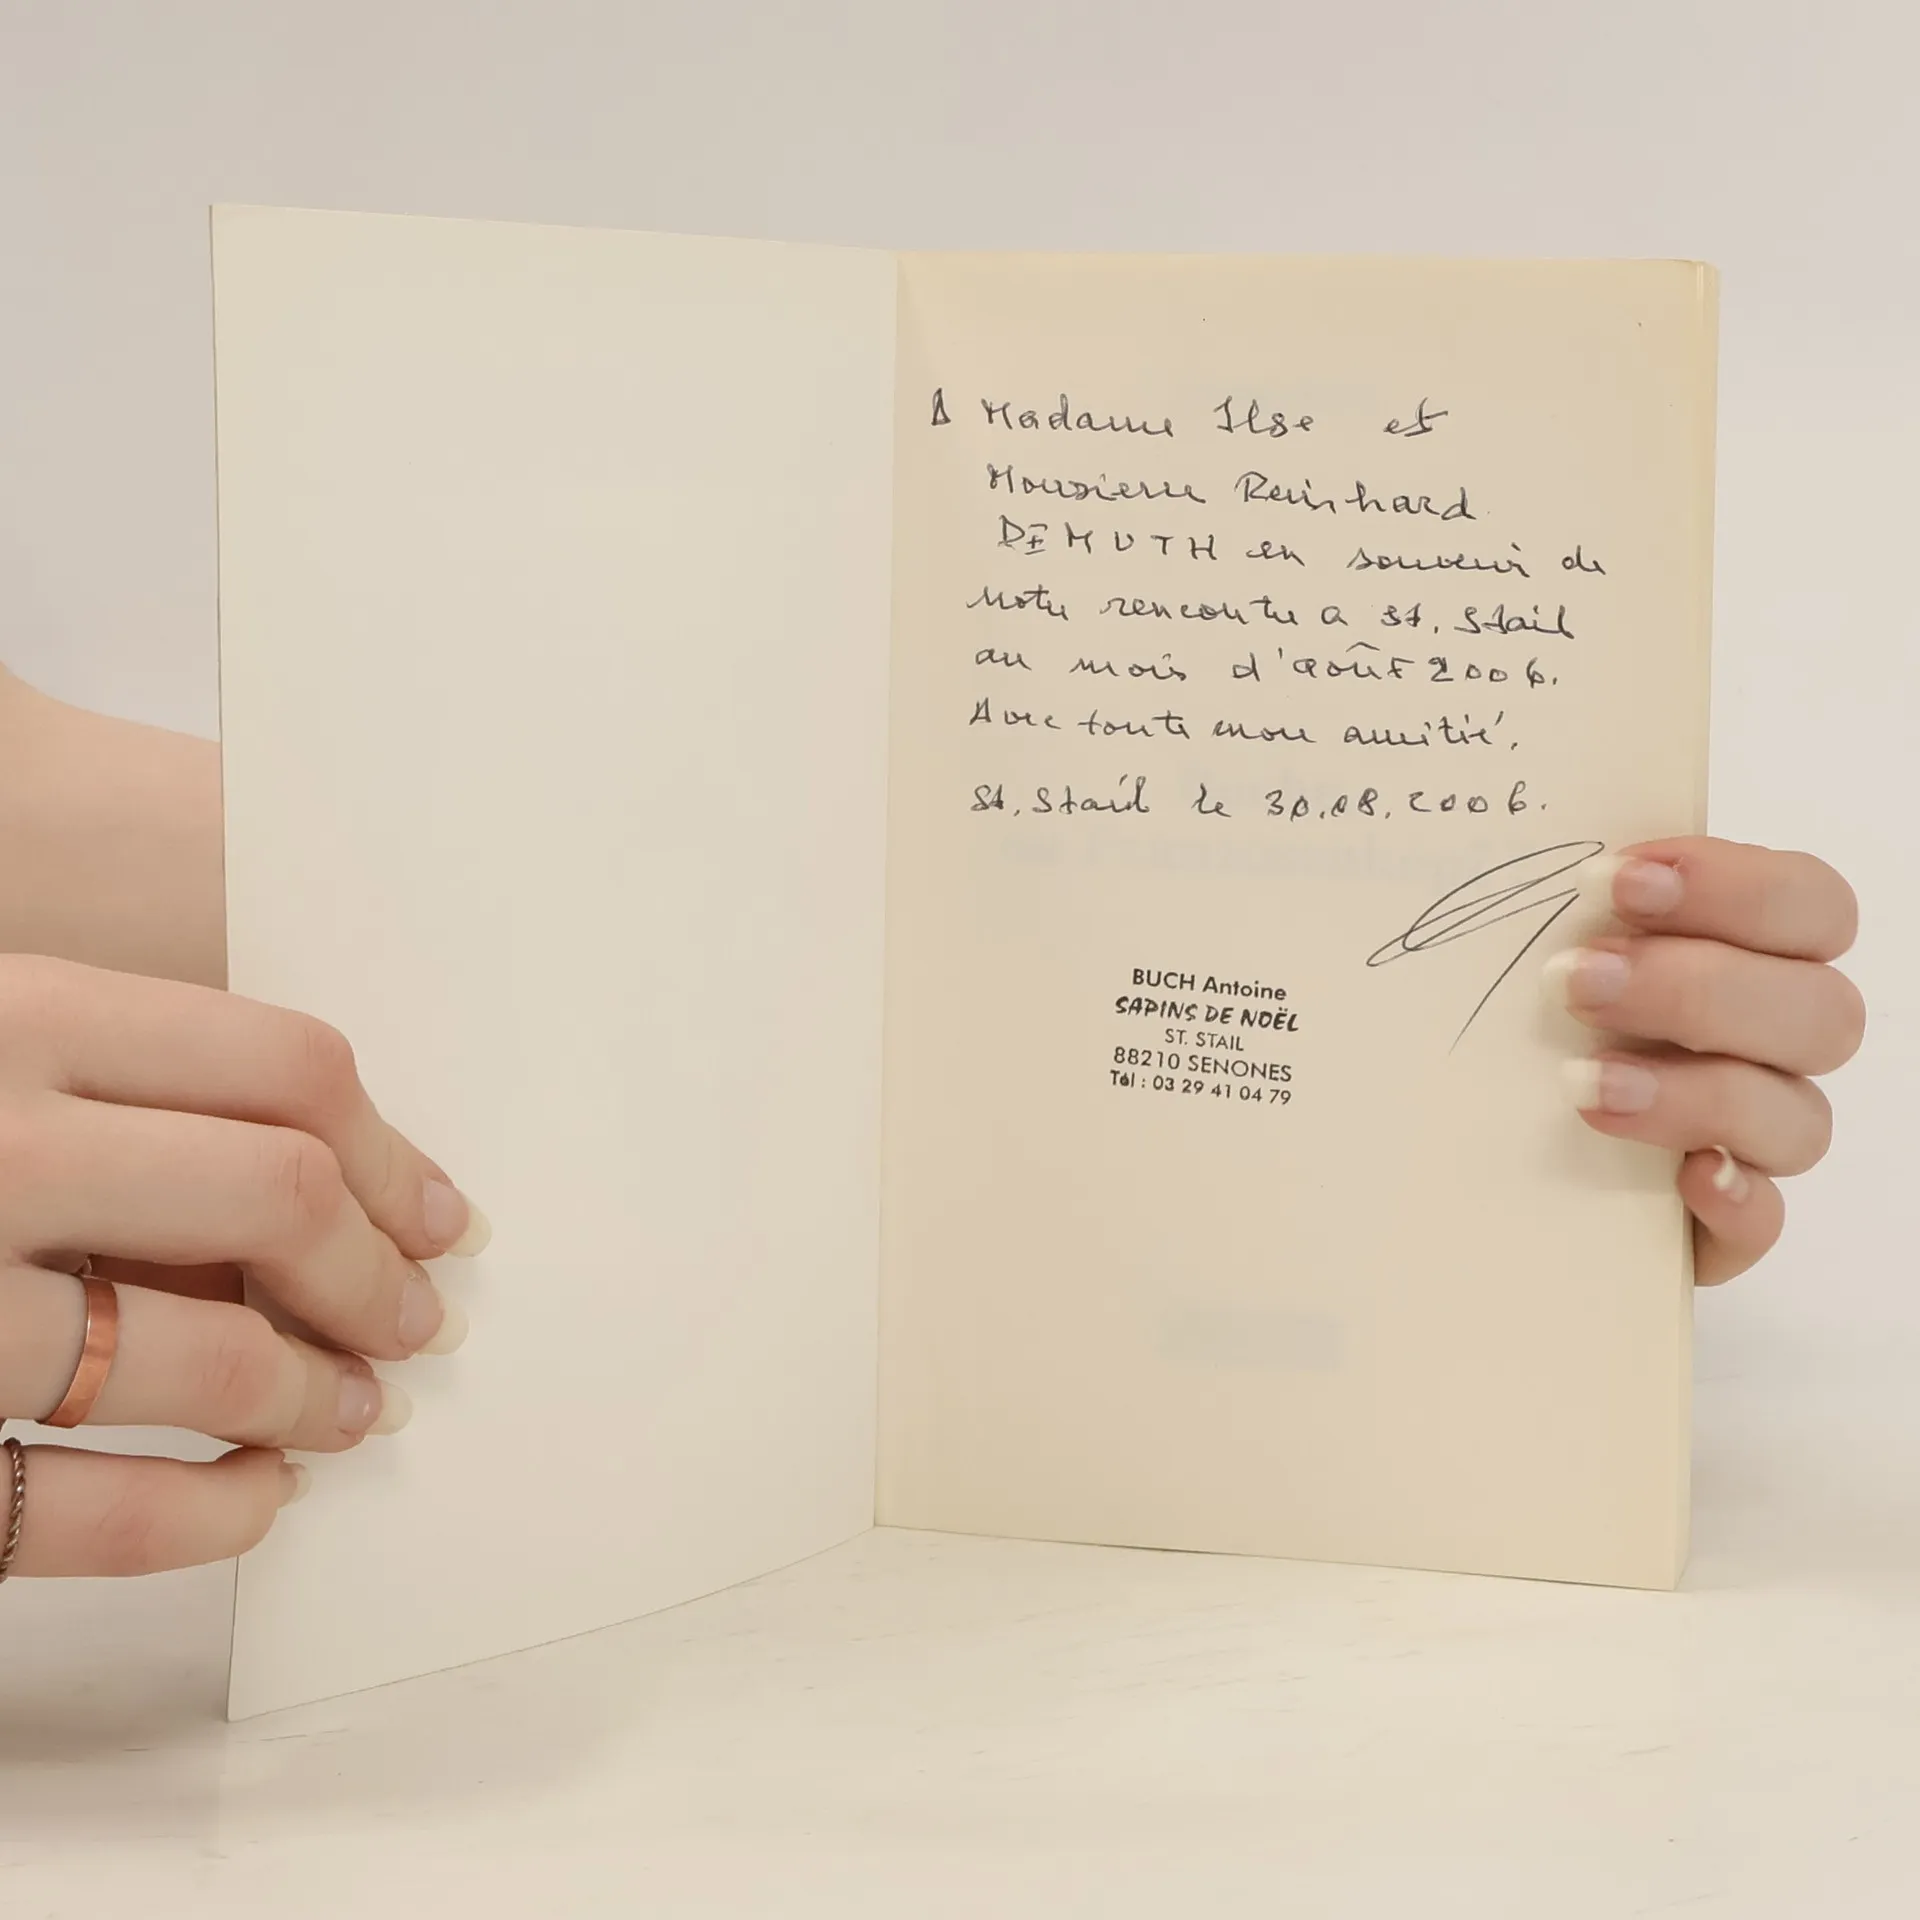 A Madame Ilse et
Monsieur Reinhard
DEMUTH en souvenir de
notre rencontre a St. Stail
au mois d'août 2006.
Avec toute mon amitié.
St. Stail le 30.08.2006.
BUCH Antoine
SAPINS DE NOËL
ST. STAIL
88210 SENONES
Tél : 03 29 41 04 79